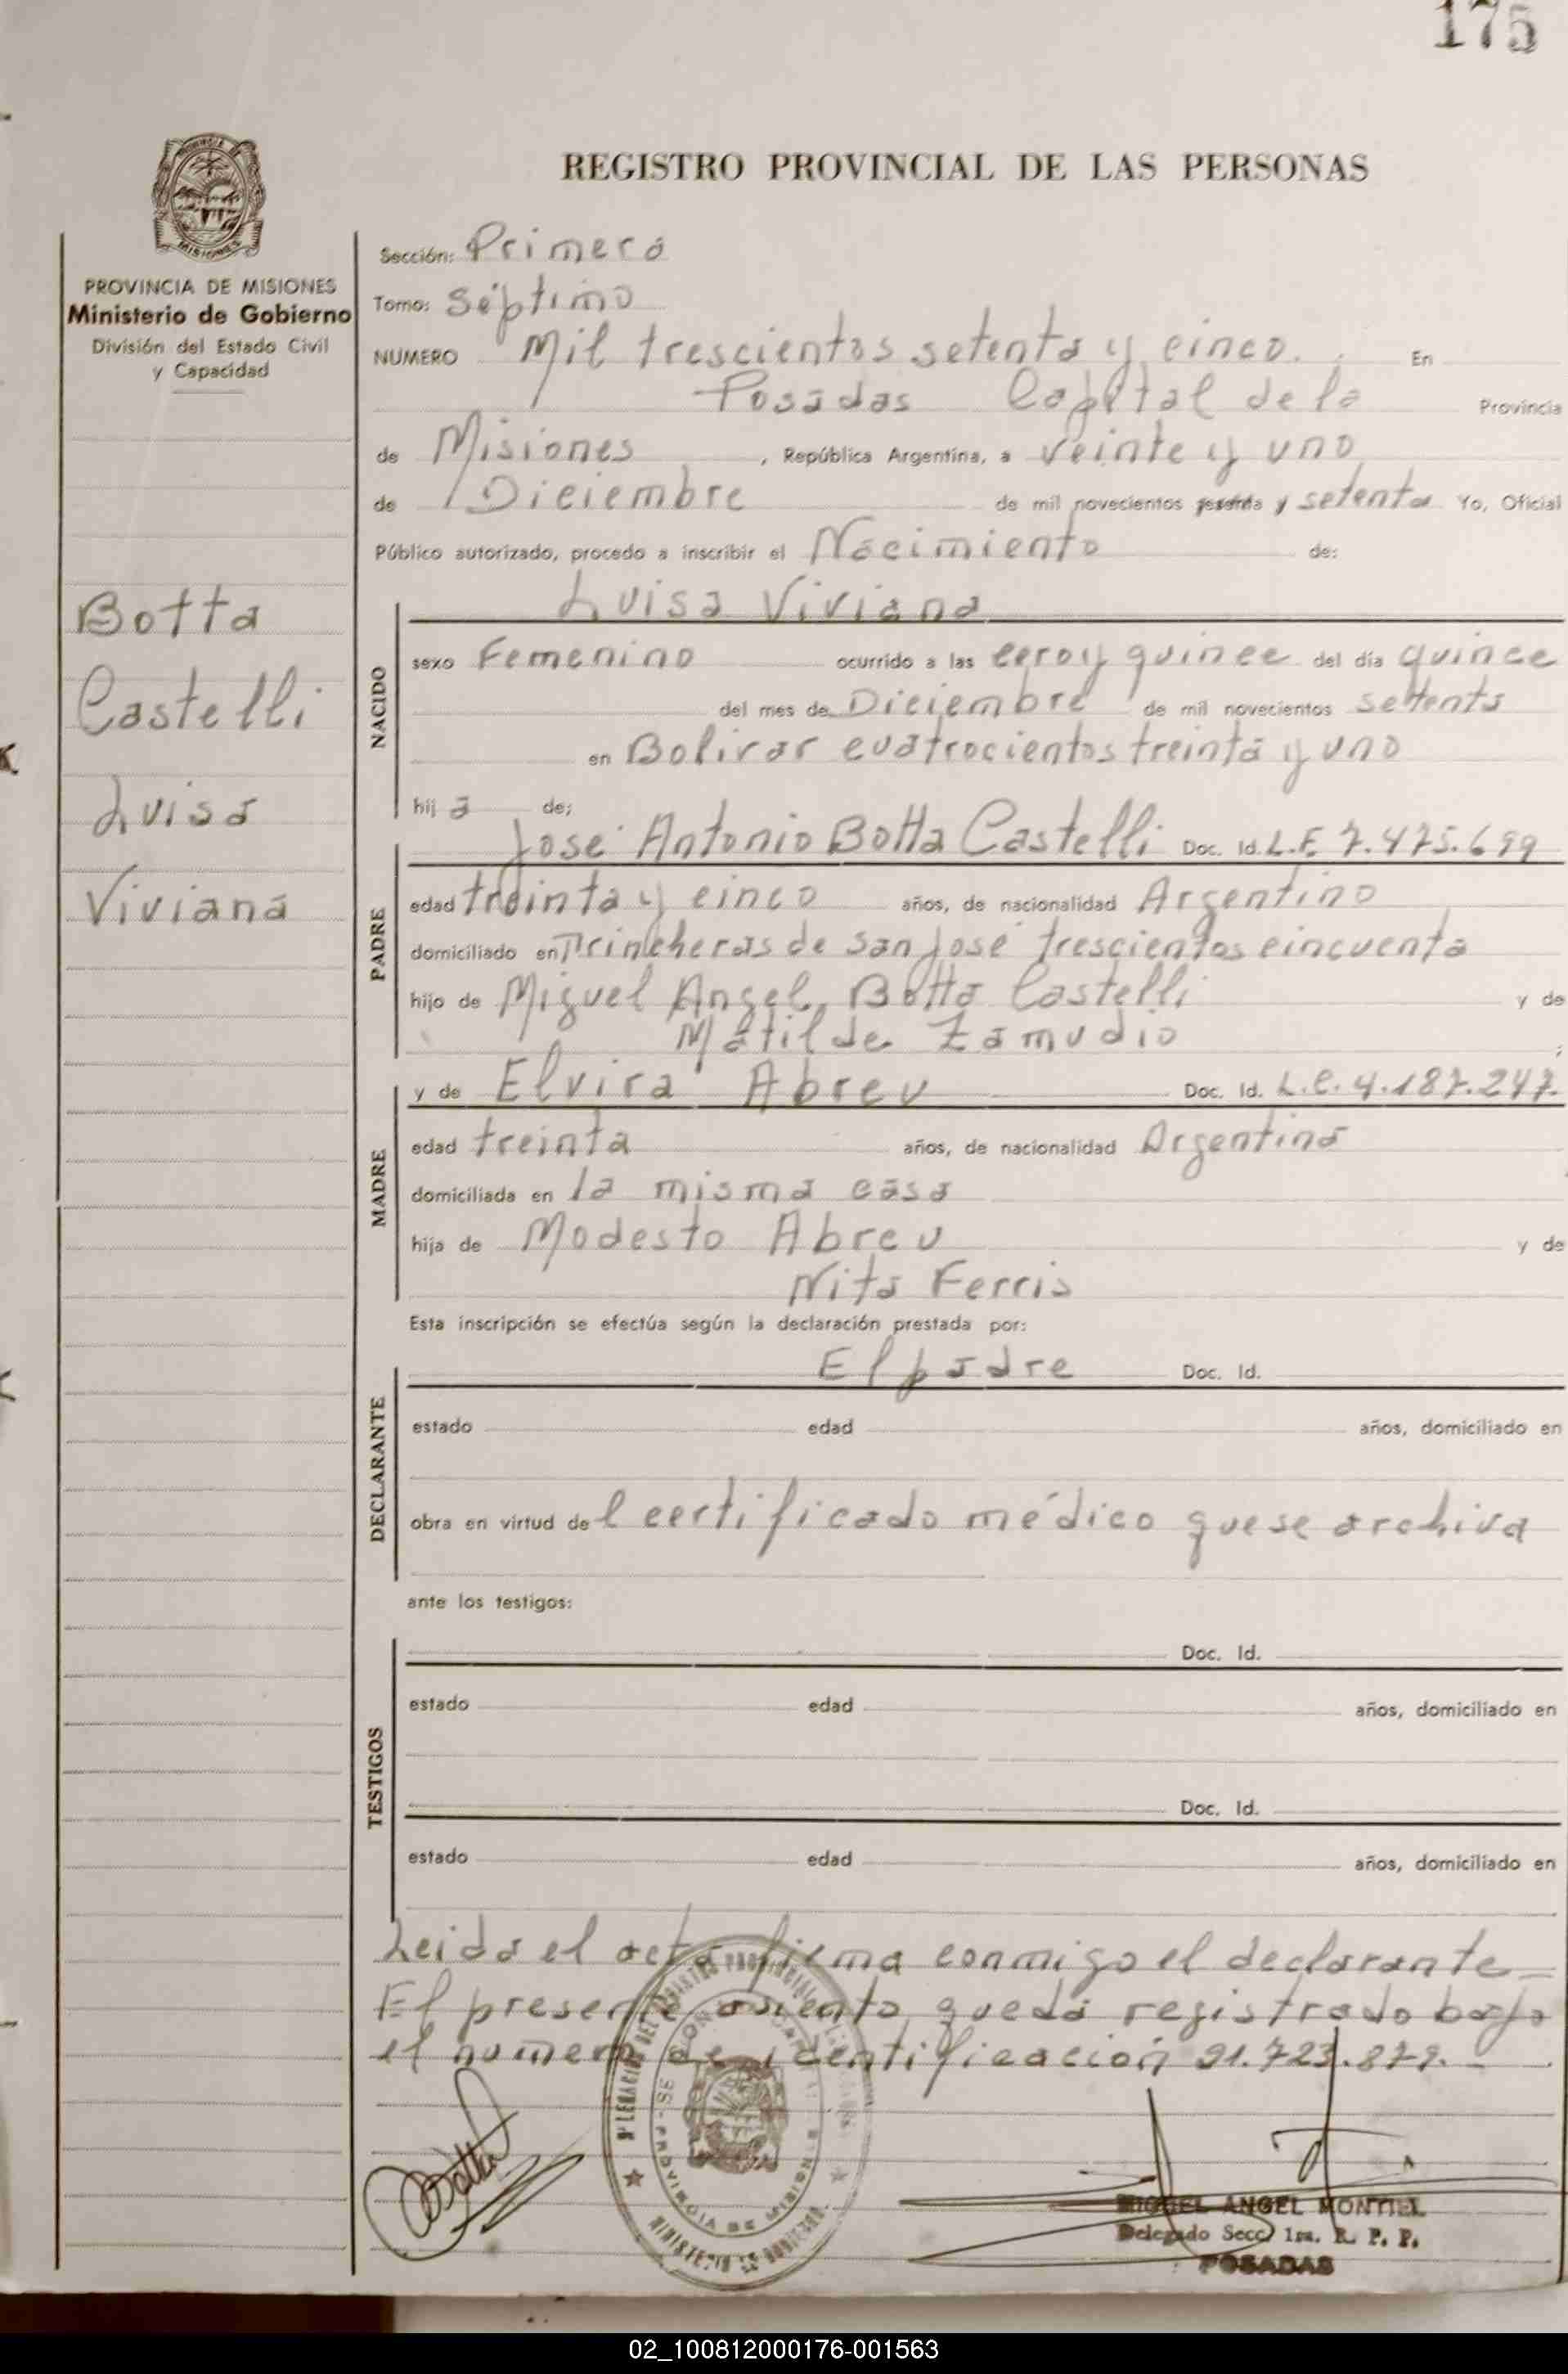 175
REGISTRO PROVINCIAL DE LAS PERSONAS
PROVINCIA DE MISIONES
Ministerio de Gobierno
División del Estado Civil
y Capacidad
Botta
Castelli
Luisa
Viviana
Sección: Primera
Tomo: Séptimo
NUMERO Mil trescientos setenta y cinco. En
Posadas Capital de la Provincia
de Misiones, República Argentina, a veinte y uno
de Diciembre de mil novecientos sesenta y setenta Yo, Oficial
Público autorizado, procedo a inscribir el Nacimiento de:
NACIDO
Luisa Viviana
sexo Femenino ocurrido a las cero y quince del día quince
del mes de Diciembre de mil novecientos setenta
en Bolivar cuatrocientos treinta y uno
hija de;
PADRE
José Antonio Botta Castelli Doc. Id. L.E. 7.475.699
edad treinta y cinco años, de nacionalidad Argentino
domiciliado en Trincheras de San José trescientos cincuenta
hijo de Miguel Angel Botta Castelli y de
Matilde Zamudio ;
MADRE
y de Elvira Abreu Doc. Id. L.C. 4.187.247.
edad treinta años, de nacionalidad Argentina
domiciliada en la misma casa
hija de Modesto Abreu y de
Nita Ferris
Esta inscripción se efectúa según la declaración prestada por:
DECLARANTE
El padre Doc. Id.
estado edad años, domiciliado en
obra en virtud del certificado médico que se archiva
ante los testigos:
TESTIGOS
Doc. Id.
estado edad años, domiciliado en
Doc. Id.
estado edad años, domiciliado en
Leida el acta firma conmigo el declarante
El presente asiento queda registrado bajo
el numero de identificación 21.723.879.
MIGUEL ANGEL MONTIEL
Delegado Secc. 1ra. R. P. P.
POSADAS
02_100812000176-001563